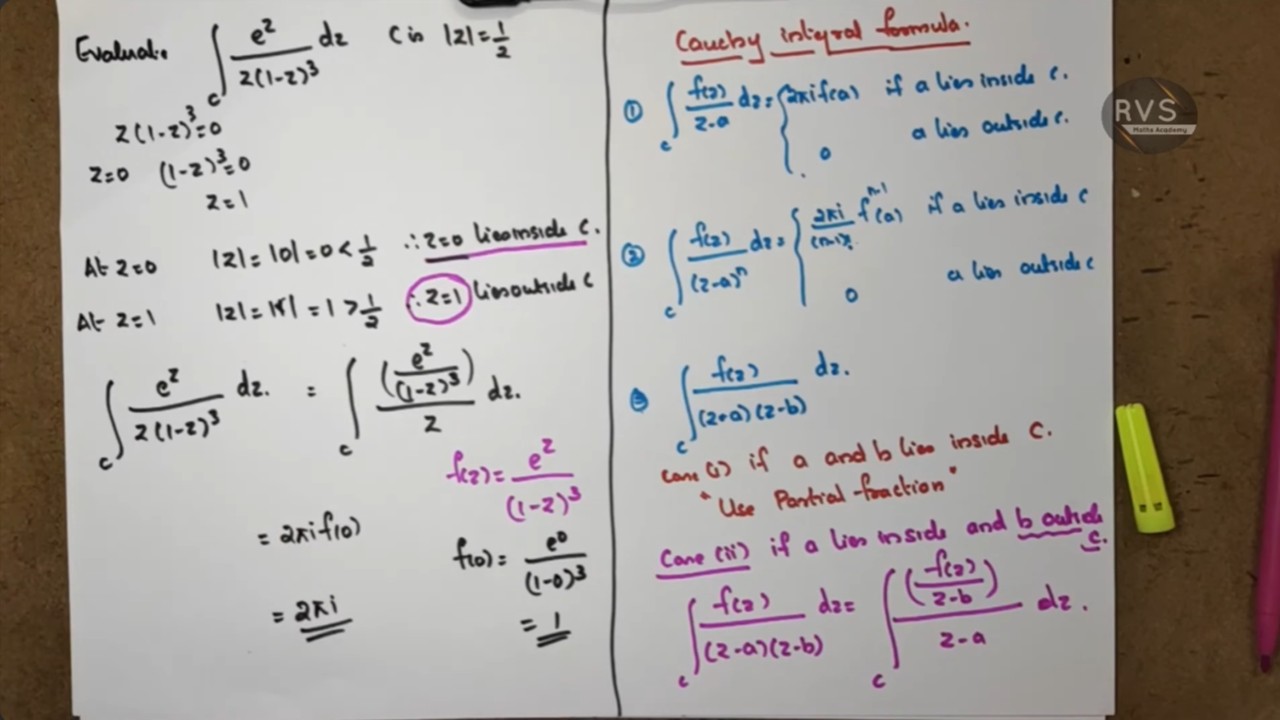 Evaluate ∫_C e^z/(z(1-z)^3) dz C is |z|=1/2
z(1-z)^3=0
z=0 (1-z)^3=0
z=1
At z=0 |z|=|0|=0<1/2 ∴z=0 lies inside C.
At z=1 |z|=|1|=1>1/2 ∴z=1 lies outside C
∫_C e^z/(z(1-z)^3) dz. = ∫_C (e^z/(1-z)^3)/z dz.
f(z)=e^z/(1-z)^3
=2πi f(0)
f(0)=e^0/(1-0)^3
=2πi
=1
Cauchy integral formula.
① ∫_C f(z)/(z-a) dz= { 2πi f(a) if a lies inside C.
0 a lies outside C.
② ∫_C f(z)/(z-a)^n dz= { 2πi/(n-1)! f^{n-1}(a) if a lies inside C
0 a lies outside C
③ ∫_C f(z)/((z-a)(z-b)) dz.
Case (i) if a and b lies inside C.
"Use Partial fraction"
Case (ii) if a lies inside and b outside
C.
∫_C f(z)/((z-a)(z-b)) dz= ∫_C (f(z)/(z-b))/(z-a) dz.
RVS
Maths Academy